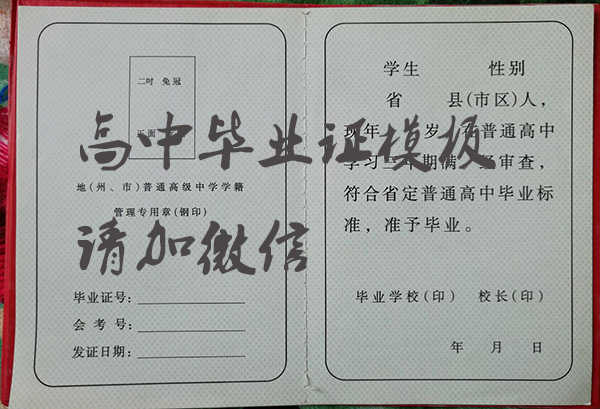 二吋 免冠
正面
地(州、市)普通高级中学学籍
管理专用章(钢印)
毕业证号：
会考号：
发证日期：
学生 性别
省 县(市区)人，
现年 岁，在普通高中
学习三年期满，经审查，
符合省定普通高中毕业标
准，准予毕业。
毕业学校(印) 校长(印)
年 月 日
高中毕业证模板
请加微信